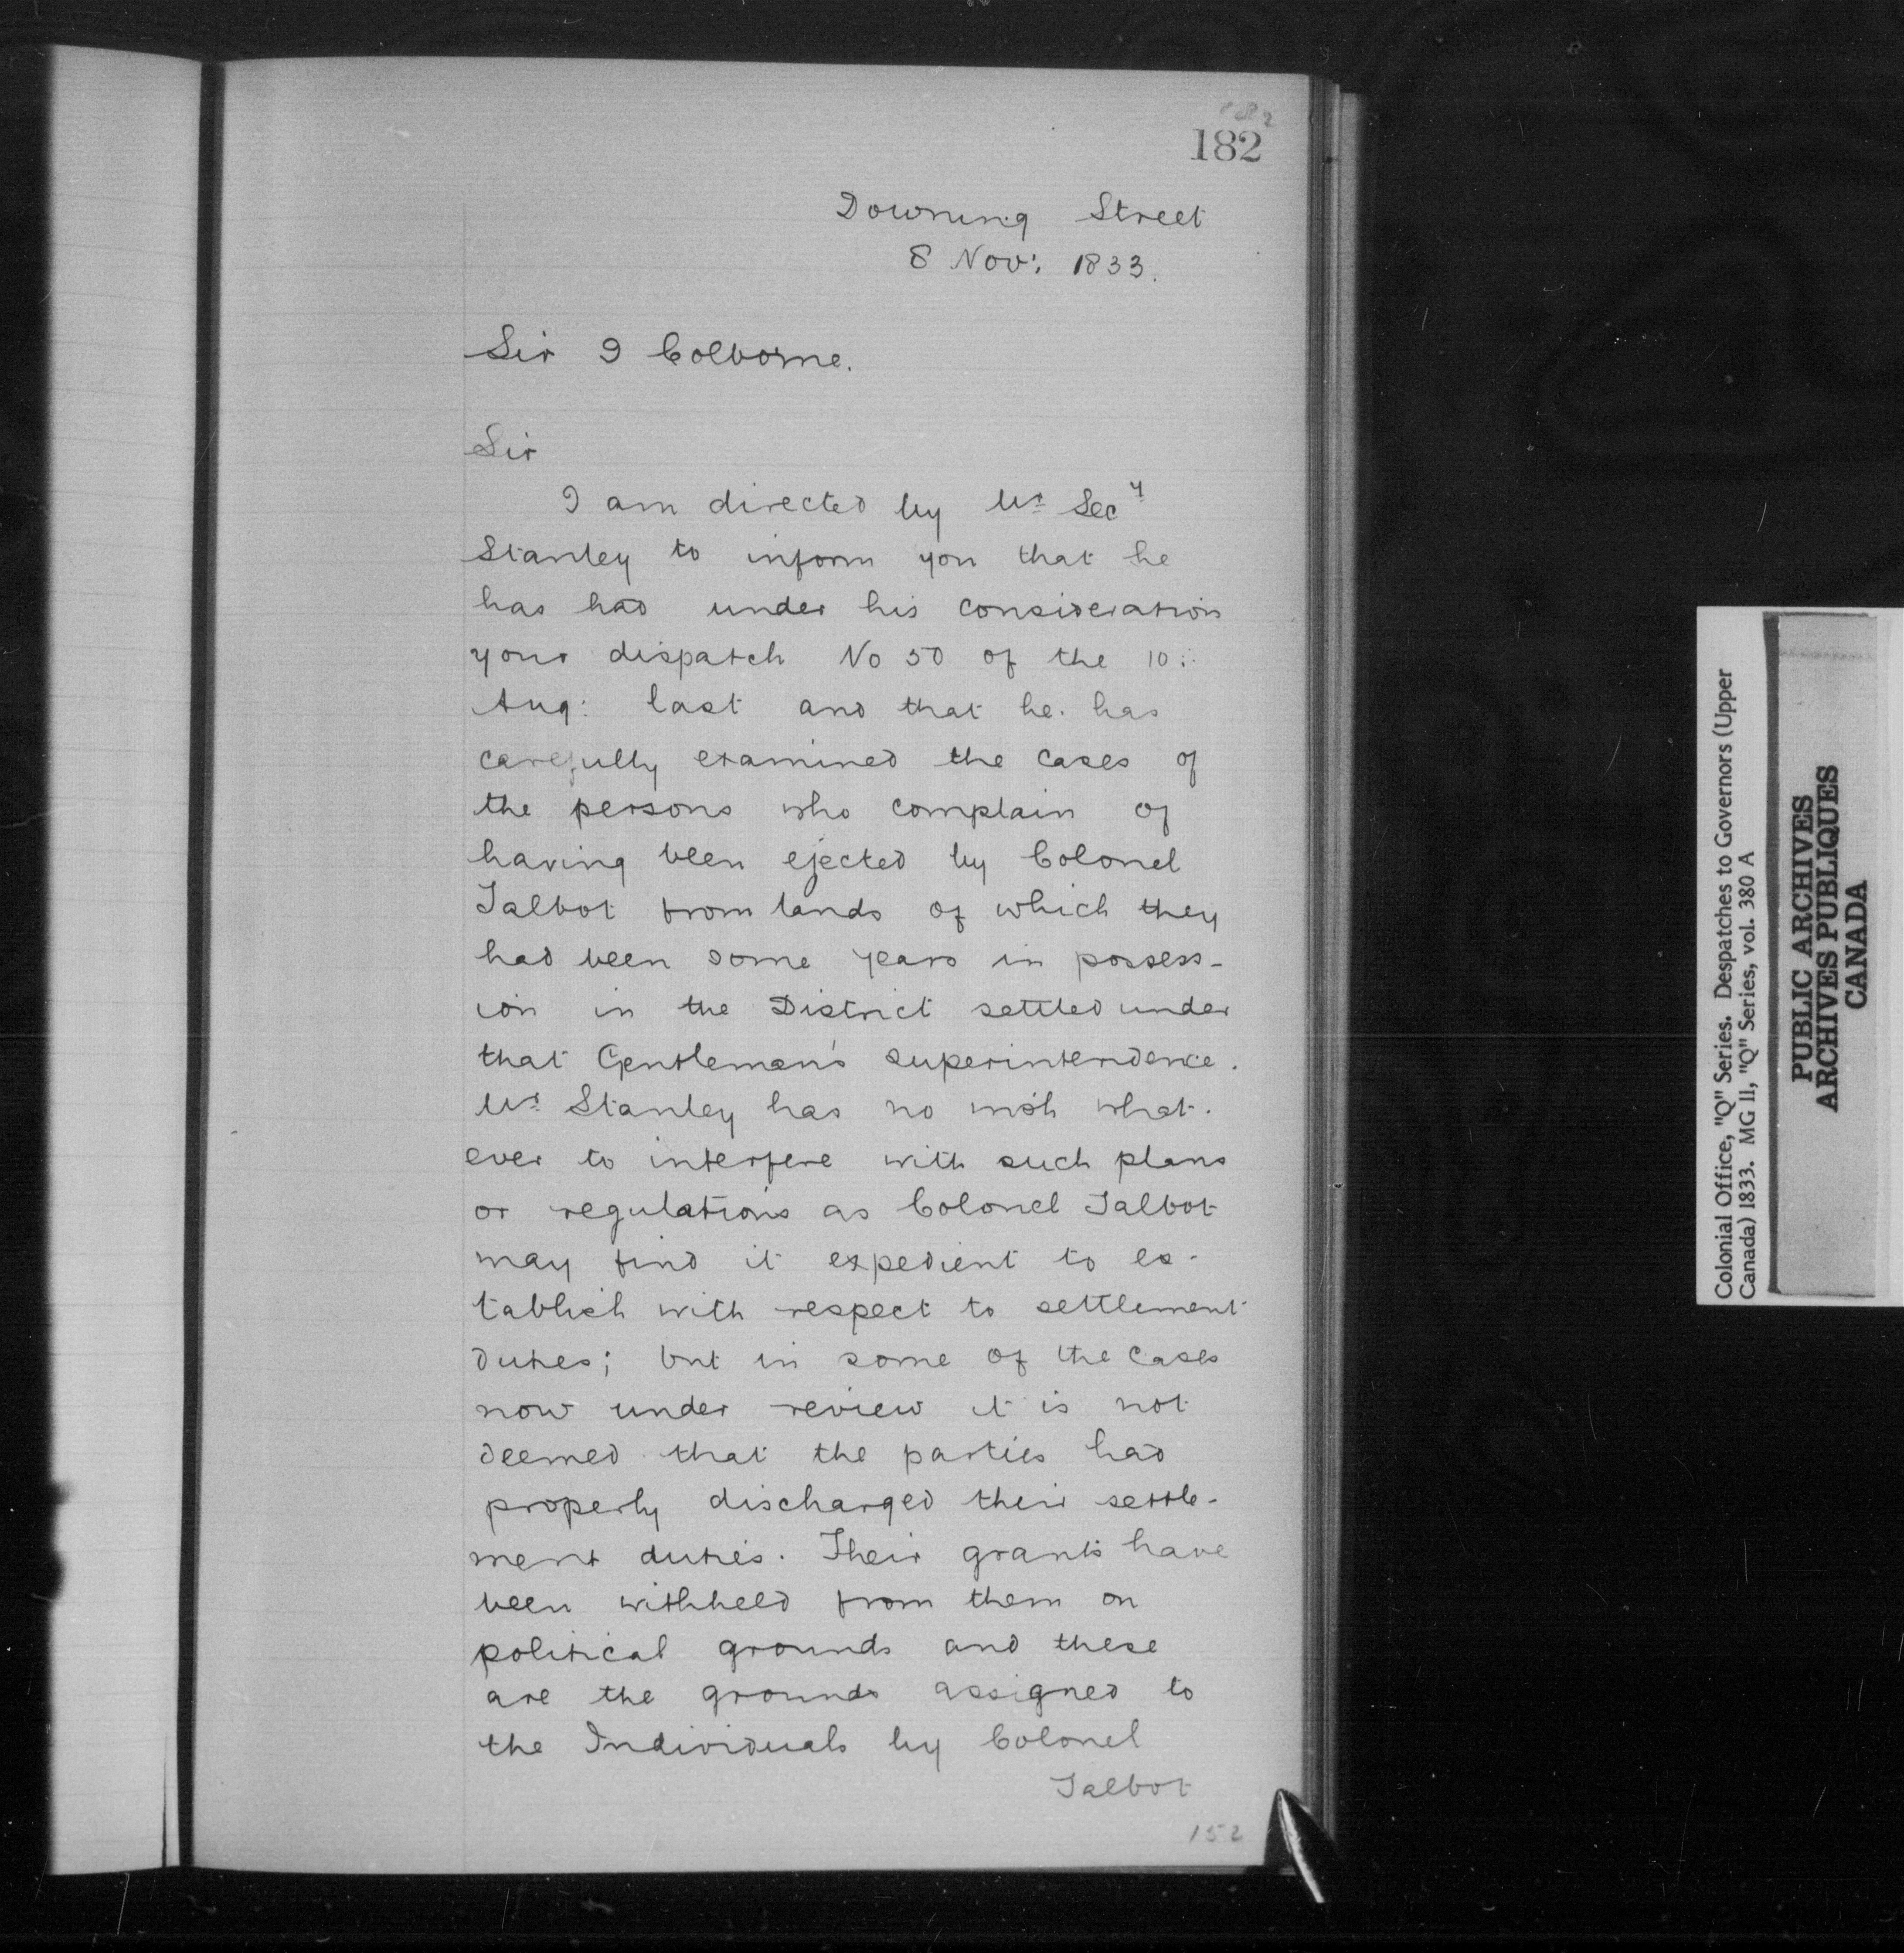 182
182
Downing Street
8 Nov: 1833.
Sir J Colborne.
Sir
I am directed by Mr Secy
Stanley to inform you that he
has had under his consideration
your dispatch No 50 of the 10:
Aug: last and that he has
carefully examined the cases of
the persons who complain of
having been ejected by Colonel
Talbot from lands of which they
had been some years in possess-
ion in the District settled under
that Gentleman's superintendence.
Mr Stanley has no wish what-
ever to interfere with such plans
or regulations as Colonel Talbot
may find it expedient to es-
tablish with respect to settlement
duties; but in some of the cases
now under review it is not
deemed that the parties had
properly discharged their settle-
ment duties. Their grants have
been withheld from them on
political grounds and these
are the grounds assigned to
the Individuals by Colonel
Talbot
152
Colonial Office, "Q" Series. Despatches to Governors (Upper
Canada) 1833. MG 11, "Q" Series, vol. 380 A
PUBLIC ARCHIVES
ARCHIVES PUBLIQUES
CANADA